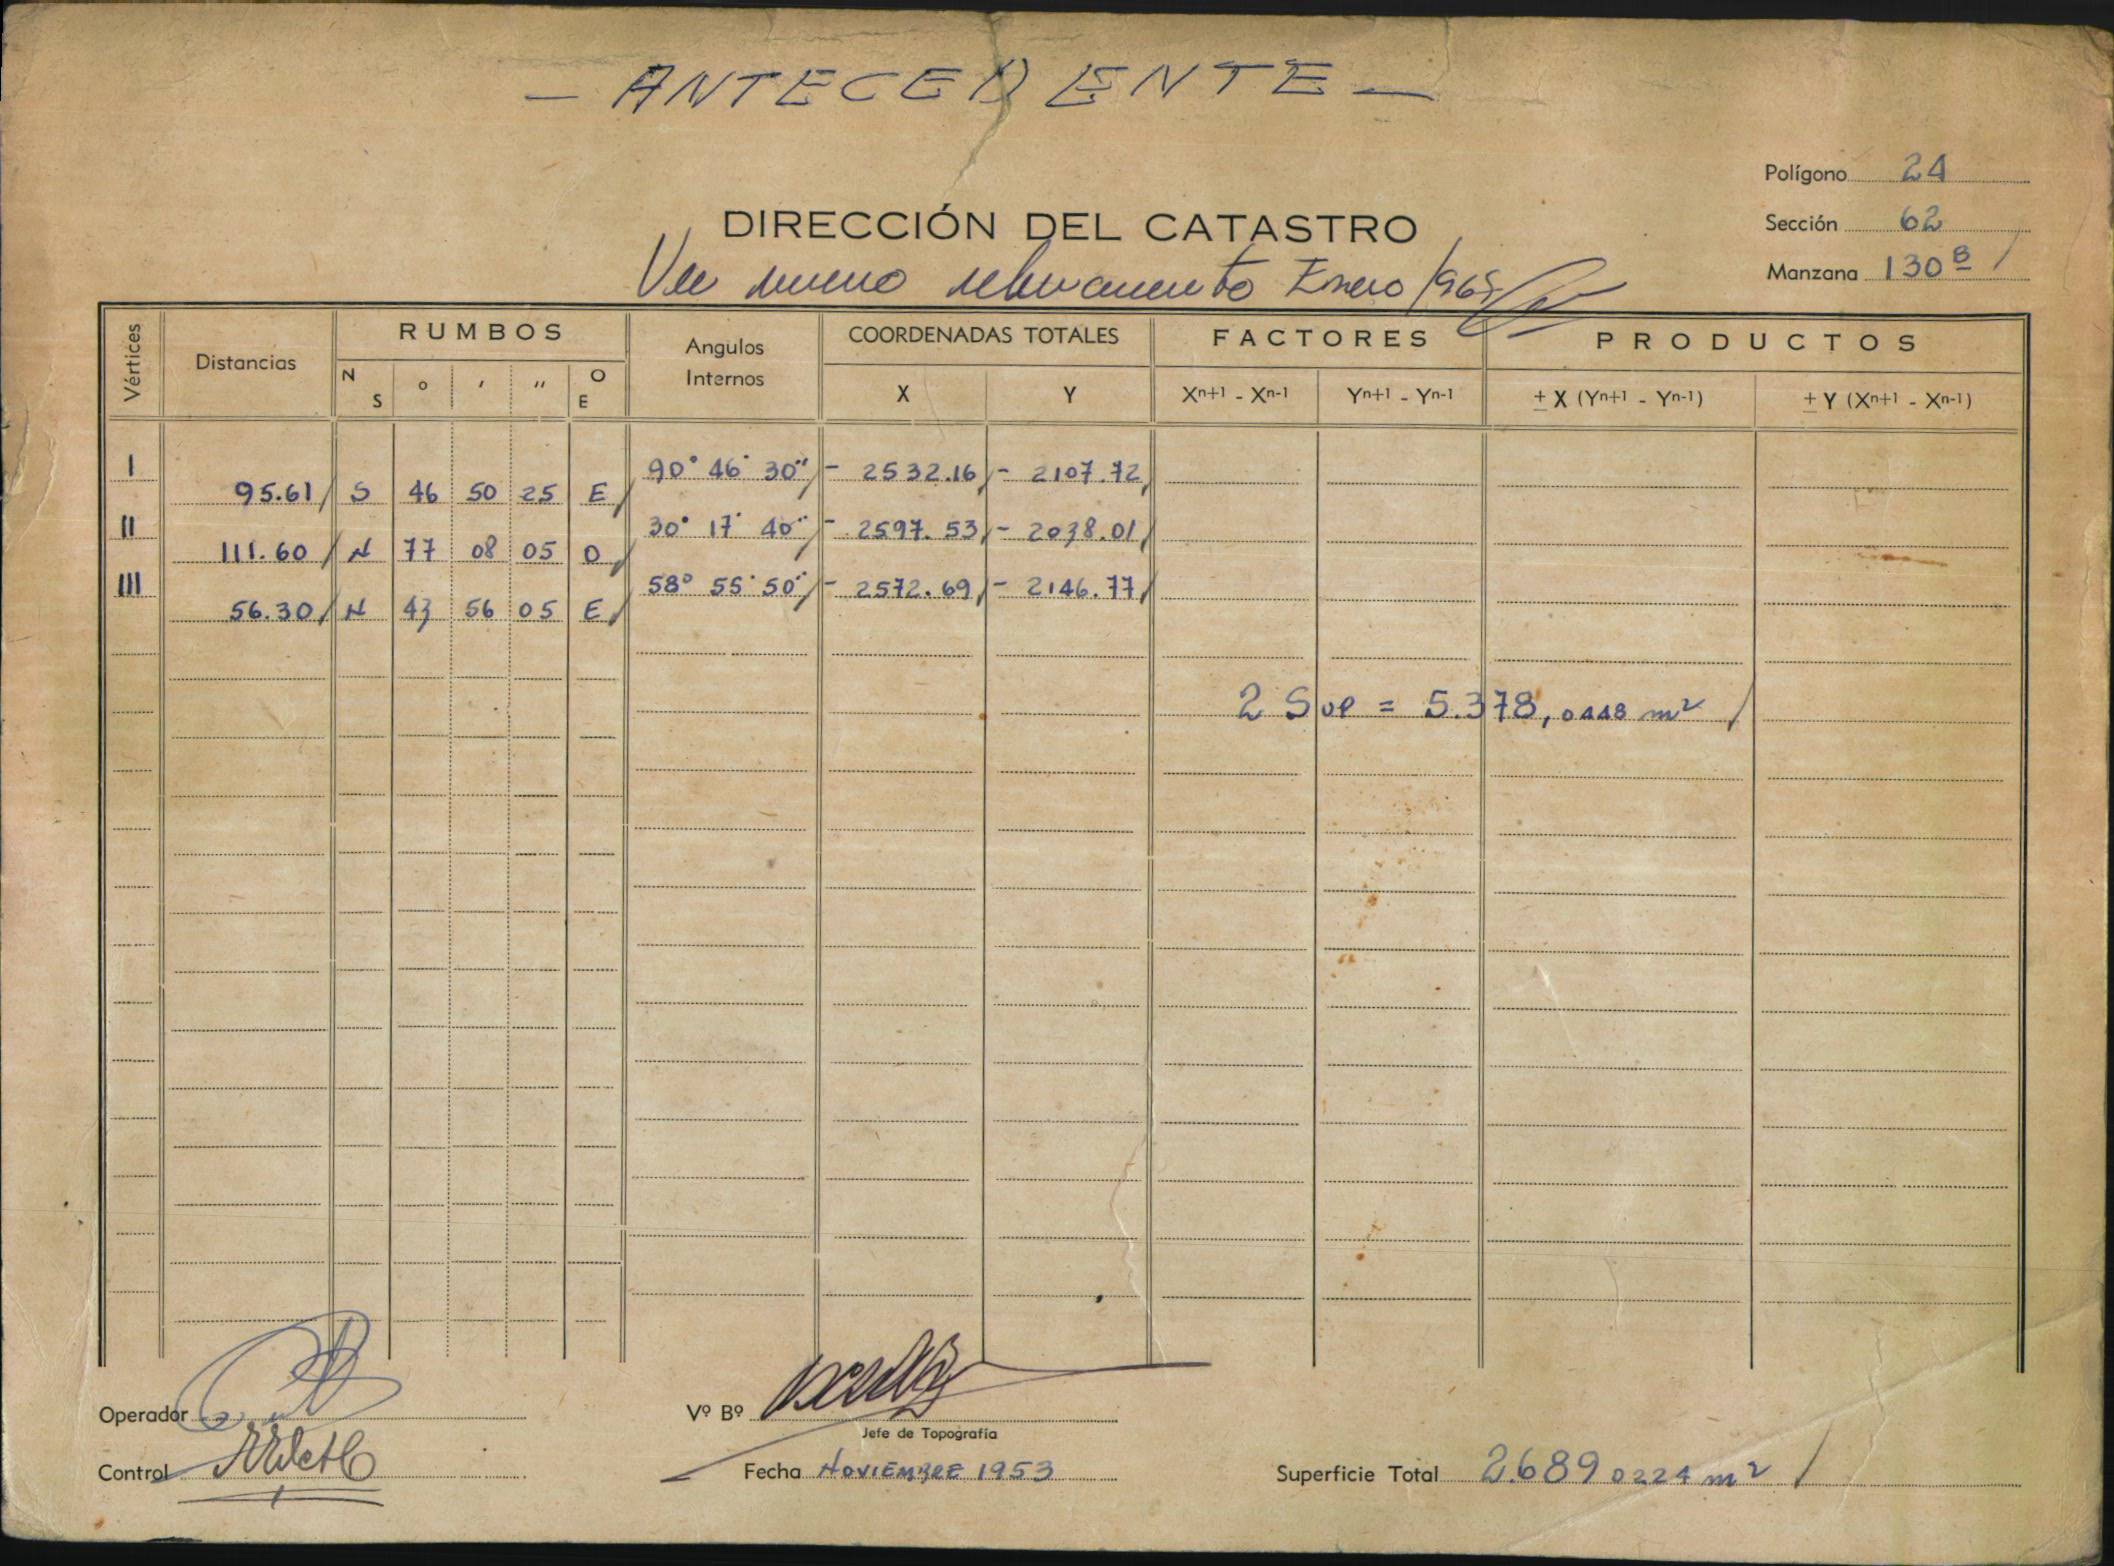 - ANTECEDENTE -
Polígono 24
DIRECCIÓN DEL CATASTRO
Sección 62
Ver nuevo relevamiento Enero 1965
Manzana 130 B /
Vértices Distancias RUMBOS Angulos Internos COORDENADAS TOTALES FACTORES PRODUCTOS
N S o ′ ″ O E X Y Xn+1 - Xn-1 Yn+1 - Yn-1 ± X (Yn+1 - Yn-1) ± Y (Xn+1 - Xn-1)
I 90° 46' 30" / - 2532.16 / - 2107.72 /
95.61 / S 46 50 25 E /
II 30° 17' 40" / - 2597.53 / - 2038.01 /
111.60 / N 77 08 05 O /
III 58° 55' 50" / - 2572.69 / - 2146.77 /
56.30 / N 43 56 05 E /
2 Sup = 5.378,0448 m² /
Operador
Vº Bº
Jefe de Topografía
Control
Fecha NOVIEMBRE 1953
Superficie Total 2.689 0224 m² /